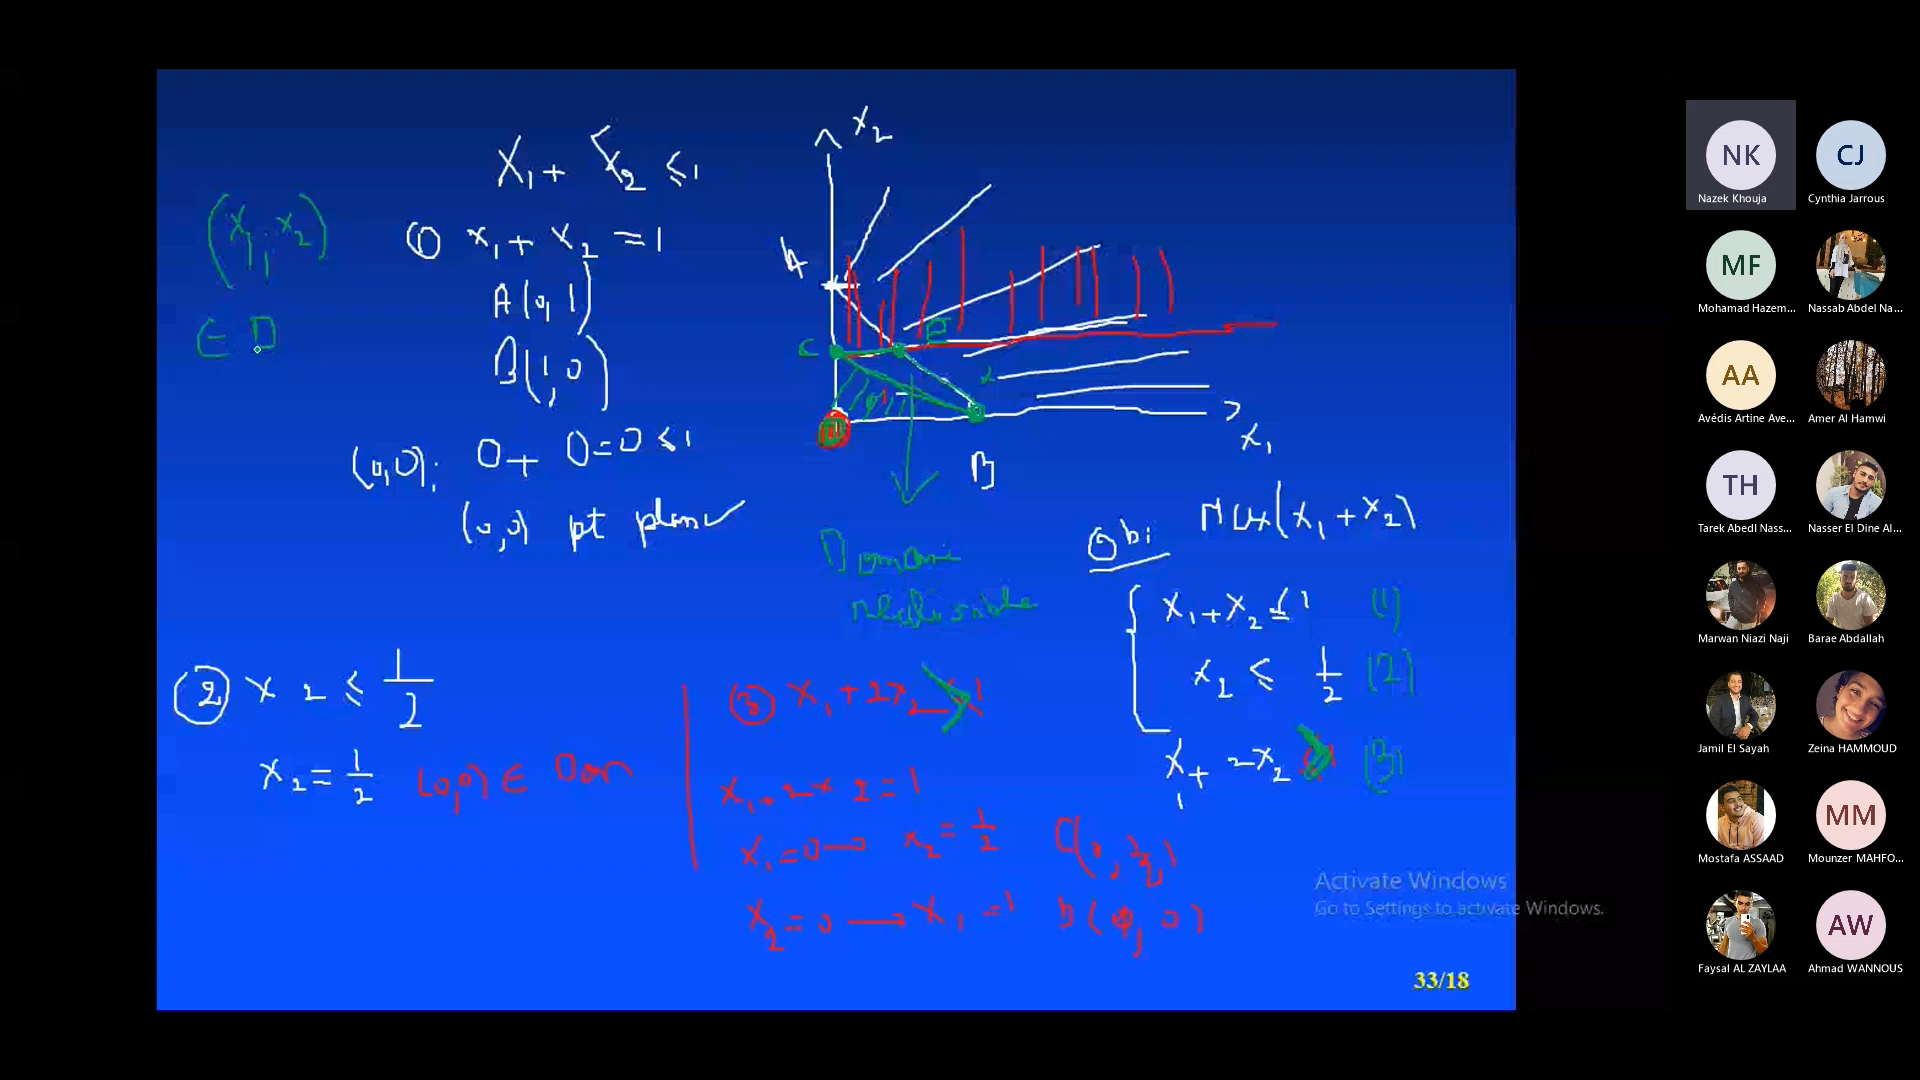 X₁ + x₂ ≤ 1
(x₁, x₂)
∈ D
① x₁ + x₂ = 1
A(0, 1)
B(1, 0)
(0,0): 0 + 0 = 0 ≤ 1
(0,0) pt plan
② x₂ ≤ 1/2
x₂ = 1/2 (0,0) ∈ Dom
x₂
A
C
E
B
x₁
③ x₁ + 2x₂ ≥ 1
x₁ + 2x₂ = 1
x₁ = 0 → x₂ = 1/2 C(0, 1/2)
x₂ = 0 → x₁ = 1
Obj Max(x₁ + x₂)
x₁ + x₂ ≤ 1 (1)
x₂ ≤ 1/2 (2)
x₁ + 2x₂ (3)
Activate Windows
Go to Settings to activate Windows.
33/18
NK
Nazek Khouja
CJ
Cynthia Jarrous
MF
Mohamad Hazem...
Nassab Abdel Na...
AA
Avédis Artine Ave...
Amer Al Hamwi
TH
Tarek Abedl Nass...
Nasser El Dine Al...
Marwan Niazi Naji
Barae Abdallah
Jamil El Sayah
Zeina HAMMOUD
Mostafa ASSAAD
MM
Mounzer MAHFO...
Faysal AL ZAYLAA
AW
Ahmad WANNOUS